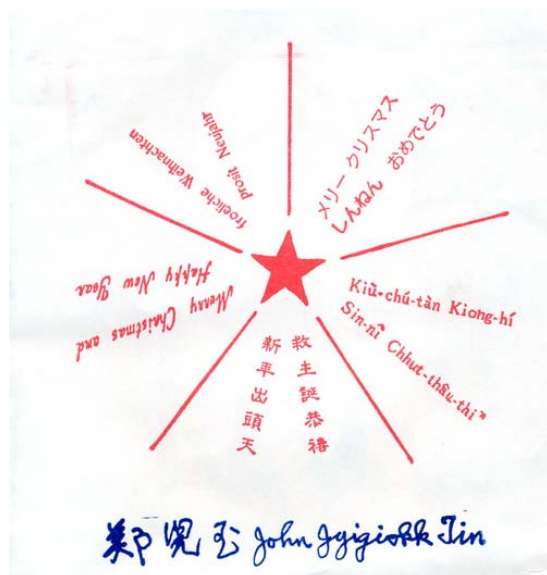 メリー クリスマス
しんねん おめでとう
Kiù-chú-tàn Kiong-hí
Sin-nî Chhut-thâu-thiⁿ
救主誕恭禧
新年出頭天
Merry Christmas and
Happy New Year
froeliche Weihnachten
prosit Neujahr
鄭兒玉 John Jyigiokk Tin